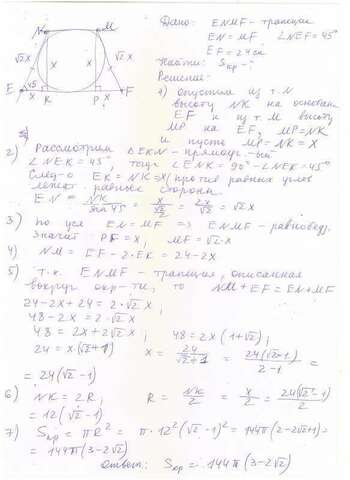 Дано: ENMF - трапеция
EN = MF ∠NEF = 45°
EF = 24 см
Найти: Sкр - ?
Решение:
N M
√2 x x x √2 x
E 45 x K P x F
1) опустим из т. N
высоту NK на основание
EF и из т. M высоту
MP на EF, MP = NK
и пусть MP = NK = X
2) Рассмотрим △EKN - прямоуг-ый
∠NEK = 45°, тогда ∠ENK = 90° - ∠NEK = 45°
След-о EK = NK = x (против равных углов
лежат равные стороны
EN = NK/sin 45 = x/(√2/2) = 2x/√2 = √2 x
3) по усл EN = MF => ENMF - равнобедр.
Значит PF = x, MF = √2·x
4) NM = EF - 2·EK = 24 - 2x
5) т.к. ENMF - трапеция, описанная
вокруг окр-ти, то NM + EF = EN + MF
24 - 2x + 24 = 2·√2 x
48 - 2x = 2·√2 x
48 = 2x + 2√2 x ; 48 = 2x (1 + √2) ;
24 = x·(√2+1) x = 24/(√2+1) = 24(√2-1)/(2-1) =
= 24(√2 - 1)
6) NK = 2R ; R = NK/2 = x/2 = 24(√2-1)/2 =
= 12(√2 - 1)
7) Sкр = πR² = π·12²(√2-1)² = 144π(2-2√2+1) =
= 144π(3-2√2)
Ответ: Sкр = 144π(3-2√2)